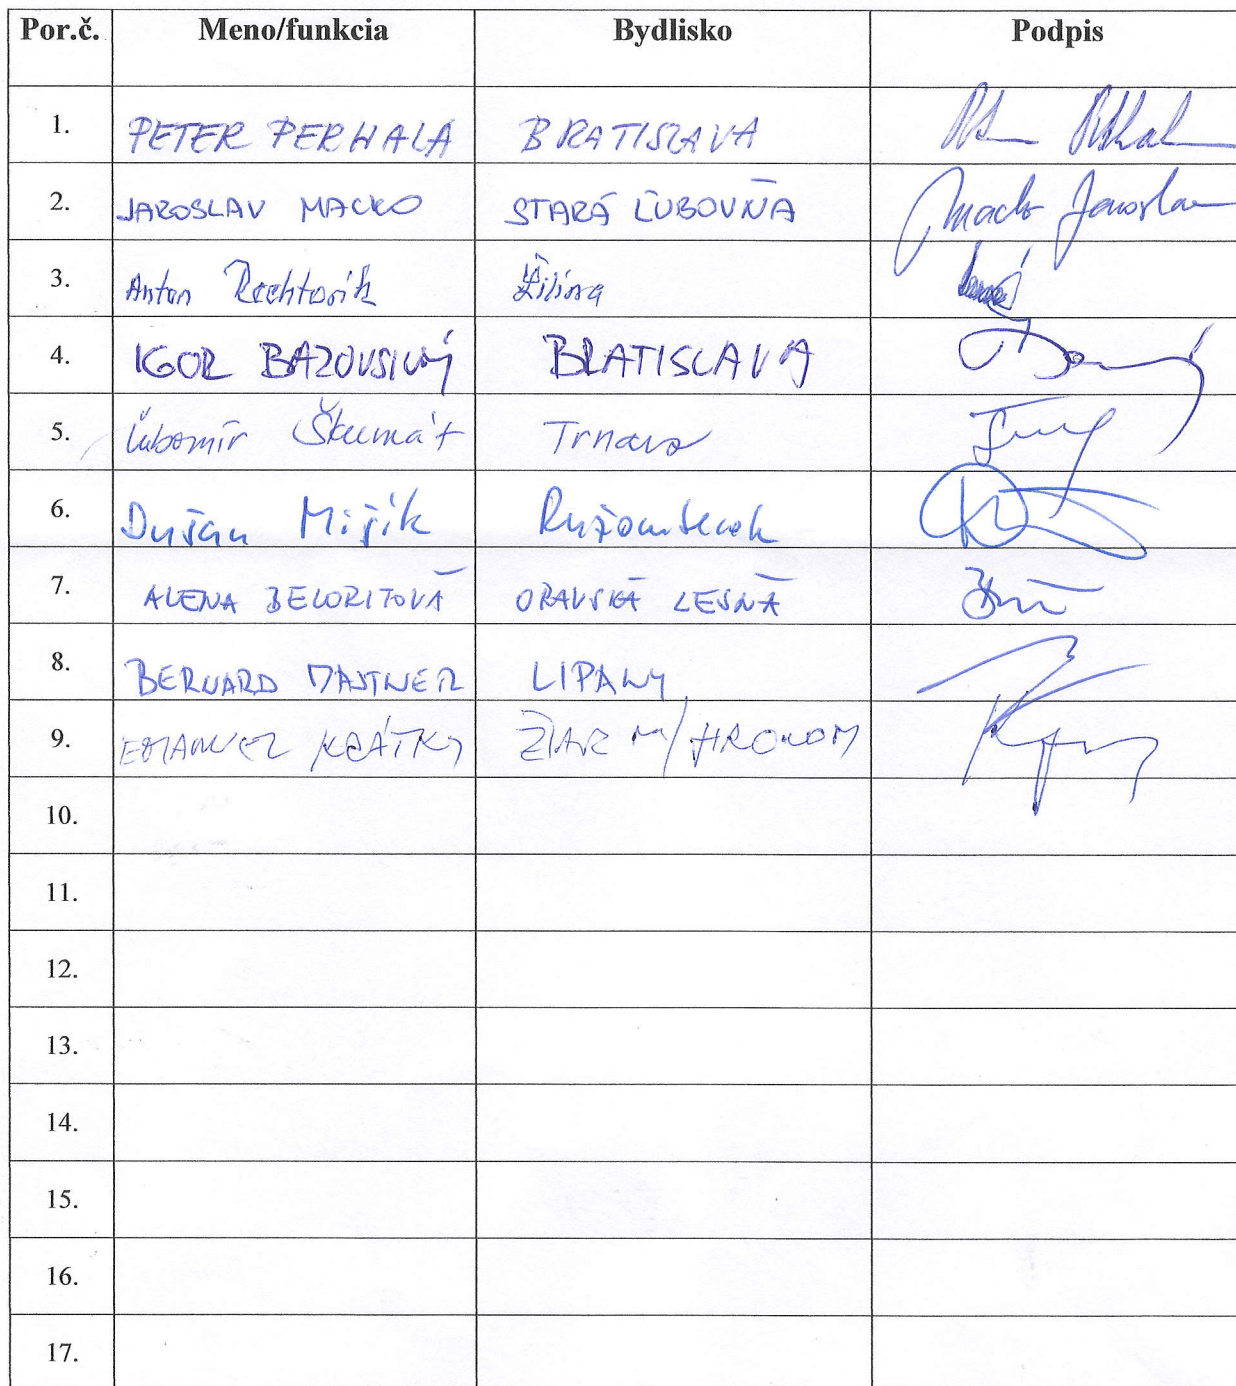 Por.č. Meno/funkcia Bydlisko Podpis
1. PETER PERHALA BRATISLAVA
2. JAROSLAV MACKO STARÁ ĽUBOVŇA Macko Jaroslav
3. Anton Rechtorik Žilina
4. IGOR BAZOVSKÝ BRATISLAVA
5. Ľubomír Škumát Trnava
6. Dušan Mišík Ružomberok
7. ALENA BELORITOVÁ ORAVSKÁ LESNÁ
8. BERNARD LIPANY
9. EMANUEL KRÁTKY ŽIAR N/HRONOM
10.
11.
12.
13.
14.
15.
16.
17.